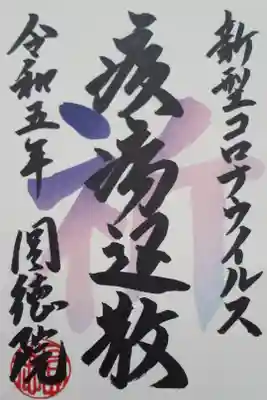 新型コロナウイルス
疫病退散
祈
令和五年
圓徳院